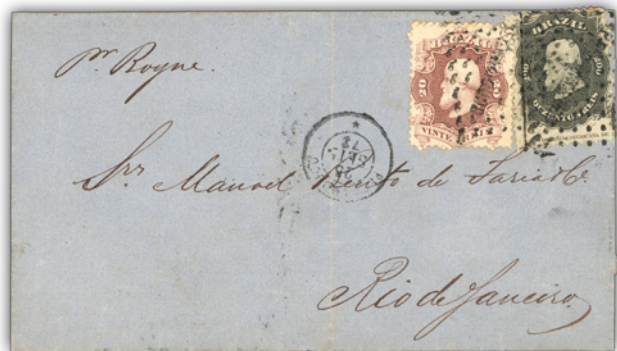 pr Boyne.
BRAZIL
20 20
VINTE REIS
BRAZIL
500 500
QUINHENTOS REIS
72
Snrs Manoel Bento de Faria & Co.
Rio de Janeiro